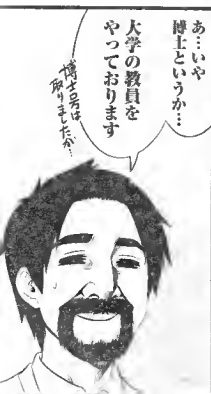 あ…いや
博士というか…
大学の教員を
やっております
博士号は
取りましたが…